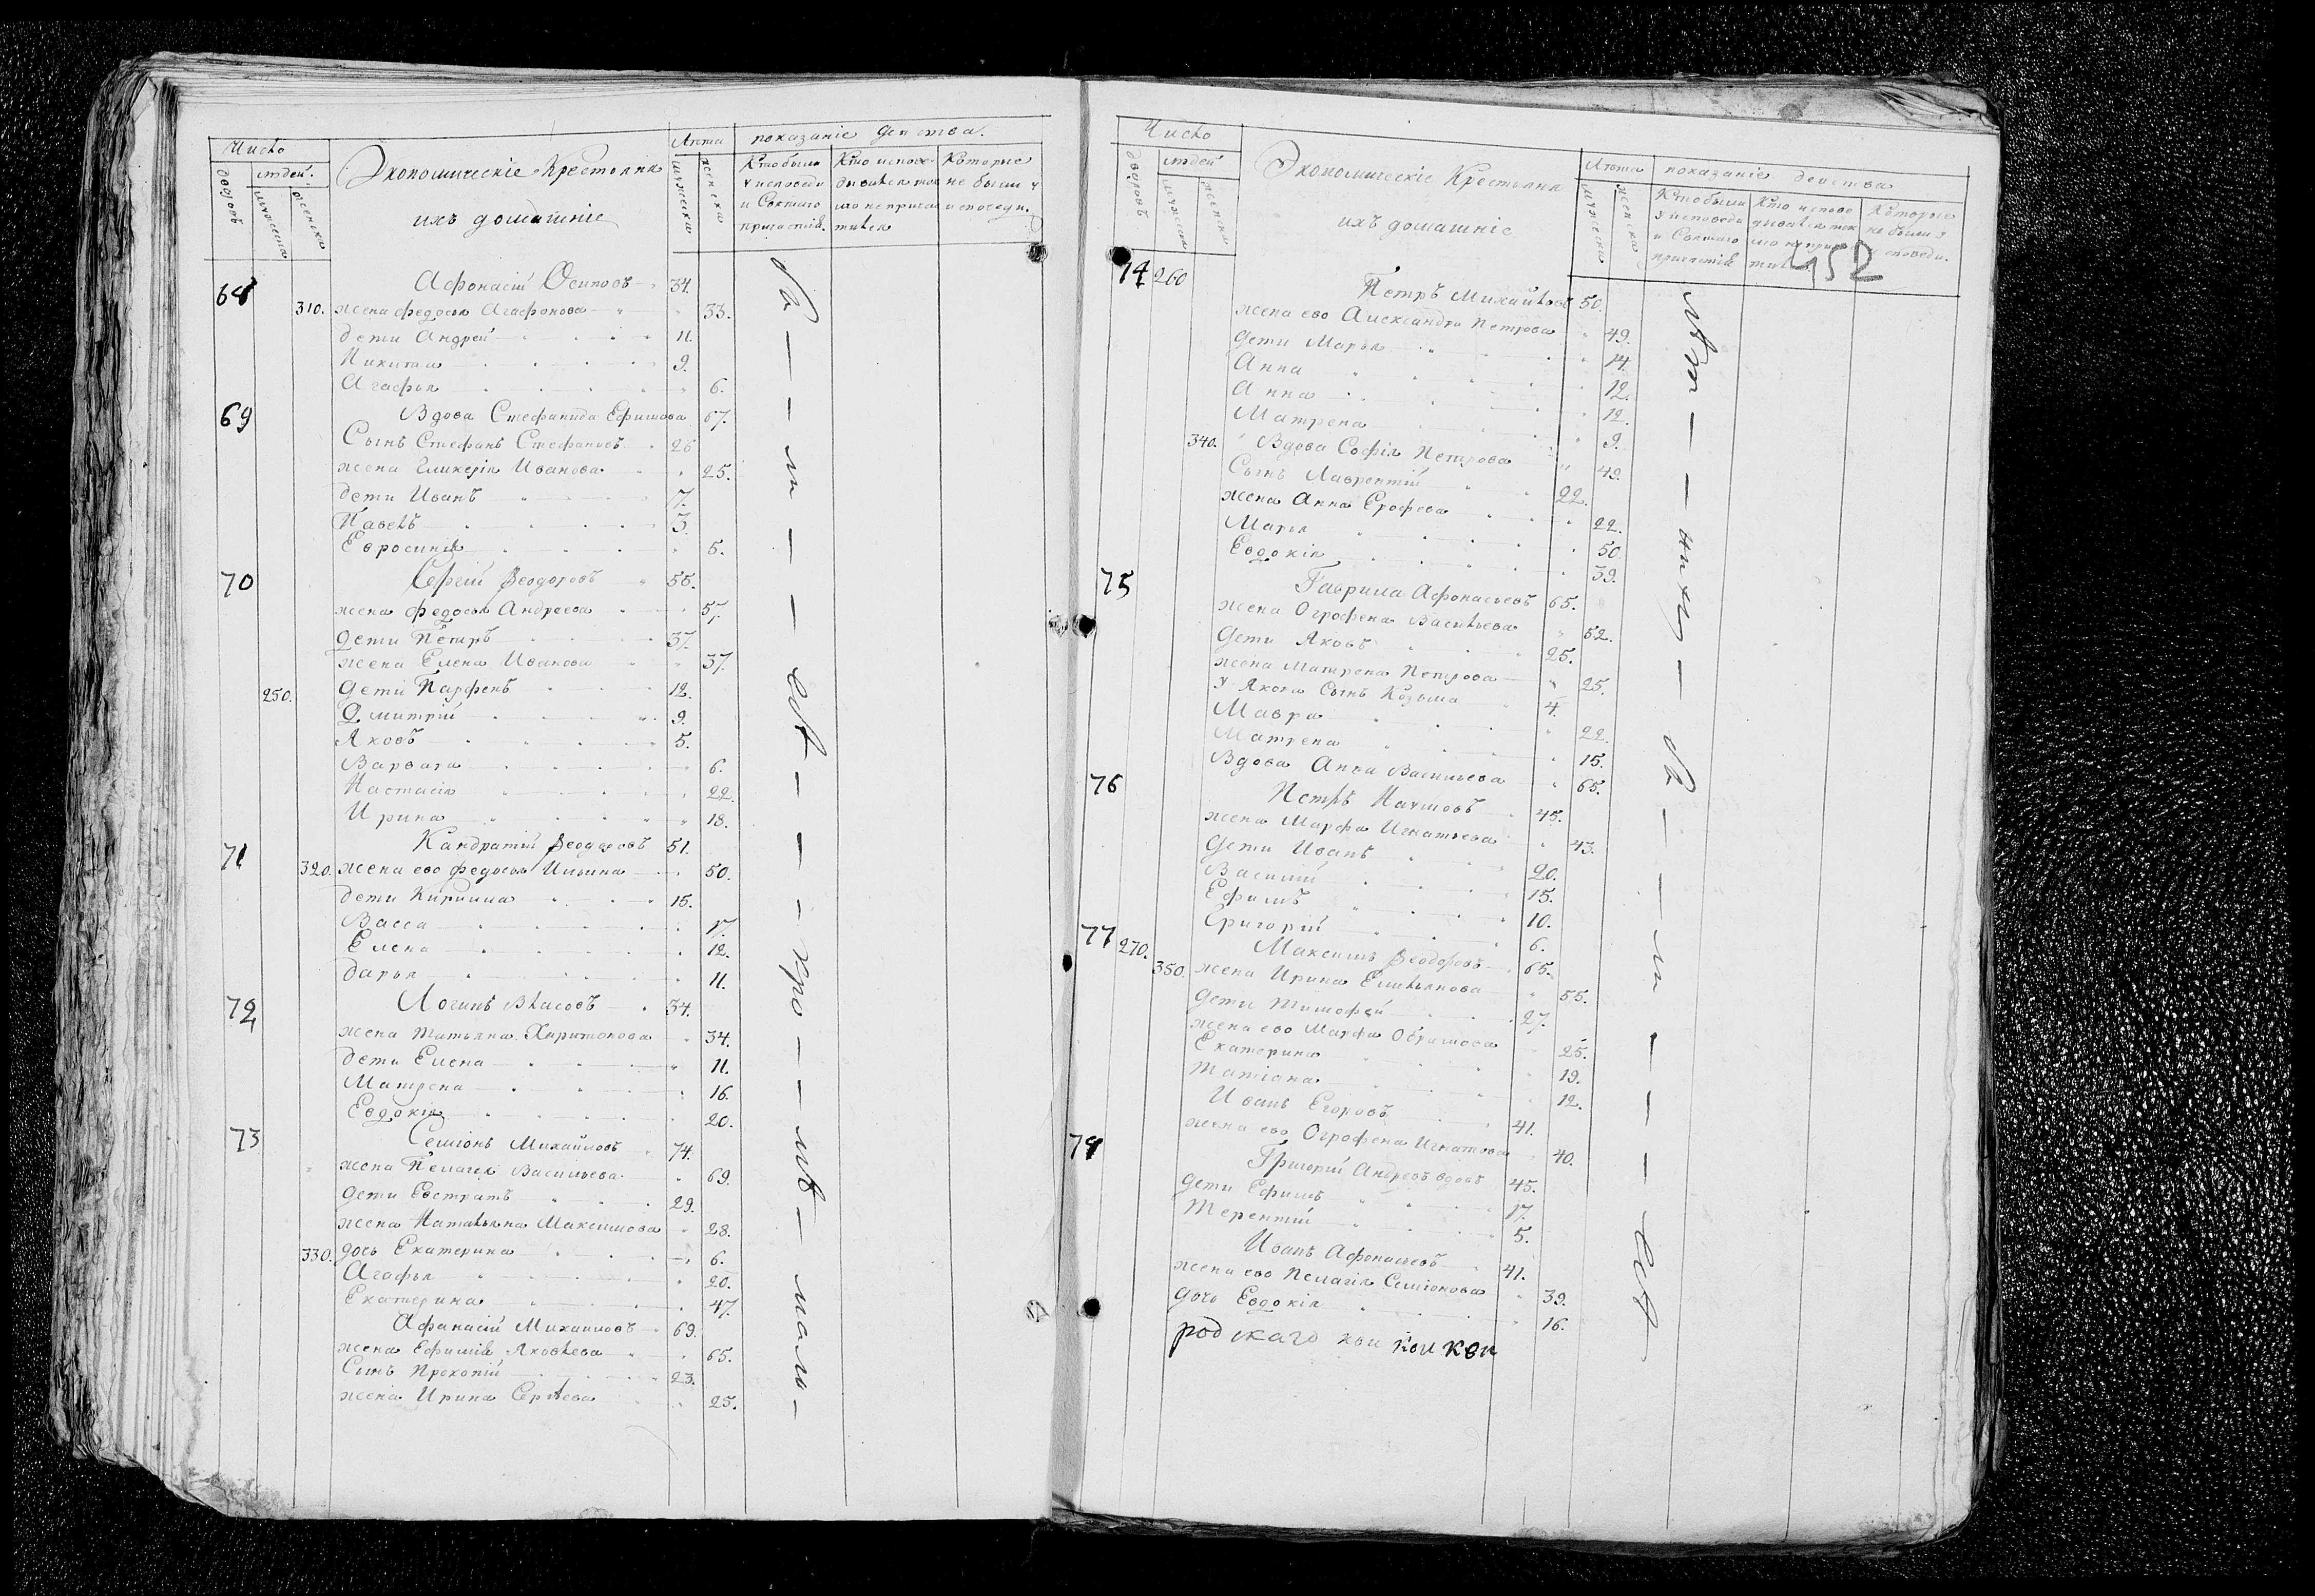 Число
людей.
дворовъ
мужеска
женска
Экономическіе Крестьяне
ихъ домашніе
Лѣта
мужеска
женска
показаніе действа.
Кто были у исповеди и Святаго причастія.
Кто испове- дывался ток мо не прича тился
Которые не были у исповеди.
68 Афонасій Осиповъ 34.
310. жена федосья Агафонова 33.
дети Андрей 11.
Никита 9.
Агафья 6.
69 Вдова Стефанида Ефимова 67.
Сынъ Стефанъ Стефановъ 26
жена Гликерія Иванова 25.
дети Иванъ 7.
Павелъ 3.
Евросинія 5.
70 Сергій Ѳеодоровъ 55.
жена федосья Андреева 57.
дети Петръ 37.
жена Елена Иванова 37.
250. дети Парфенъ 12.
Дмитрій 9.
Яковъ 5.
Варвара 6.
Настасія 22.
Ирина 18.
71 Кандратій Ѳеодоровъ 51.
320. жена ево федосья Ильина 50.
дети Кирилла 15.
Васса 17.
Елена 12.
дарья 11.
72 Логинъ Власовъ 34.
жена татьяна Харитонова 34.
дети Елена 11.
Матрена 16.
Евдокія 20.
73 Семіонъ Михайловъ 74.
жена Пелагея Васильева 69.
дети Евстратъ 29.
жена Наталья Максимова 28.
330. дочь Екатерина 6.
Агафья 20.
Екатерина 47.
Афанасій Михаиловъ 69.
жена Ефимія Яковлева 65.
Сынъ Прокопій 23.
жена Ирина Сергѣева 25.
Число
людей
дворовъ
мужеска
женска
Экономическіе Крестьяне
ихъ домашніе
Лѣта
мужеска
женска
показаніе действа
Кто были у исповеди и Святаго причастія
Кто испове дывался ток мо не прича тился
Которые не были у исповеди.
452
74 260 Петръ Михайловъ 50.
жена ево Александра Петрова 49.
дети Марья 14.
Анна 12.
Анна 12.
Матрена 9.
340. Вдова Софія Петрова 49.
Сынъ Лаврентій 22.
жена Анна Ерофева 22.
Марья 50.
Евдокія 39.
75 Гаврила Афонасьевъ 65.
жена Огрофена Васильева 52.
дети Яковъ 25.
жена Матрена Петрова 25.
у Якова Сынъ Козьма 4.
Мавра 22.
Матрена 15.
Вдова Анна Васильева 65.
76 Петръ Наумовъ 45.
жена Марфа Игнатьева 43.
дети Иванъ 20.
Василій 15.
Ефимъ 10.
Григорій 6.
77 270. Максимъ Ѳеодоровъ 65.
350. жена Ирина Емильянова 55.
дети Тимофей 27.
жена ево Марфа Обрамова 25.
Екатерина 19.
Татіана 12.
Иванъ Егоровъ 41.
жена ево Огрофена Игнатова 40.
78 Григорій Андреевъ вдовъ 45.
дети Ефимъ 17.
Терентій 5.
Иванъ Афонасьевъ 41.
жена ево Пелагія Семіонова 39.
дочь Евдокія 16.